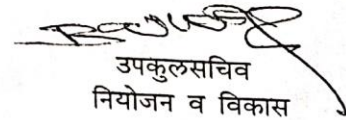 उपकुलसचिव
नियोजन व विकास